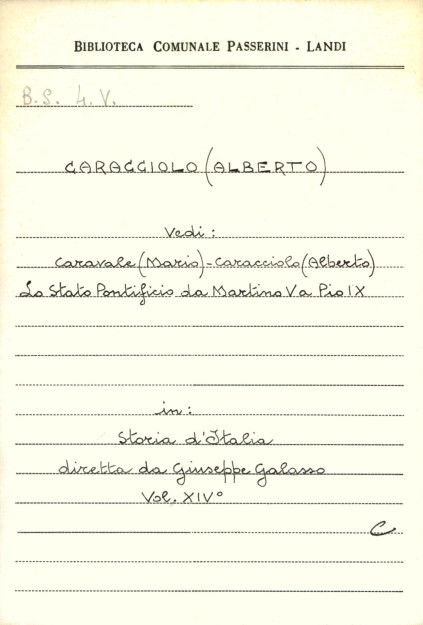 BIBLIOTECA COMUNALE PASSERINI - LANDI
B.S. 4. V.
CARACCIOLO (ALBERTO)
Vedi:
Caravale (Mario) - Caracciolo (Alberto)
Lo Stato Pontificio da Martino V a Pio IX
in:
Storia d'Italia
diretta da Giuseppe Galasso
Vol. XIV°
C